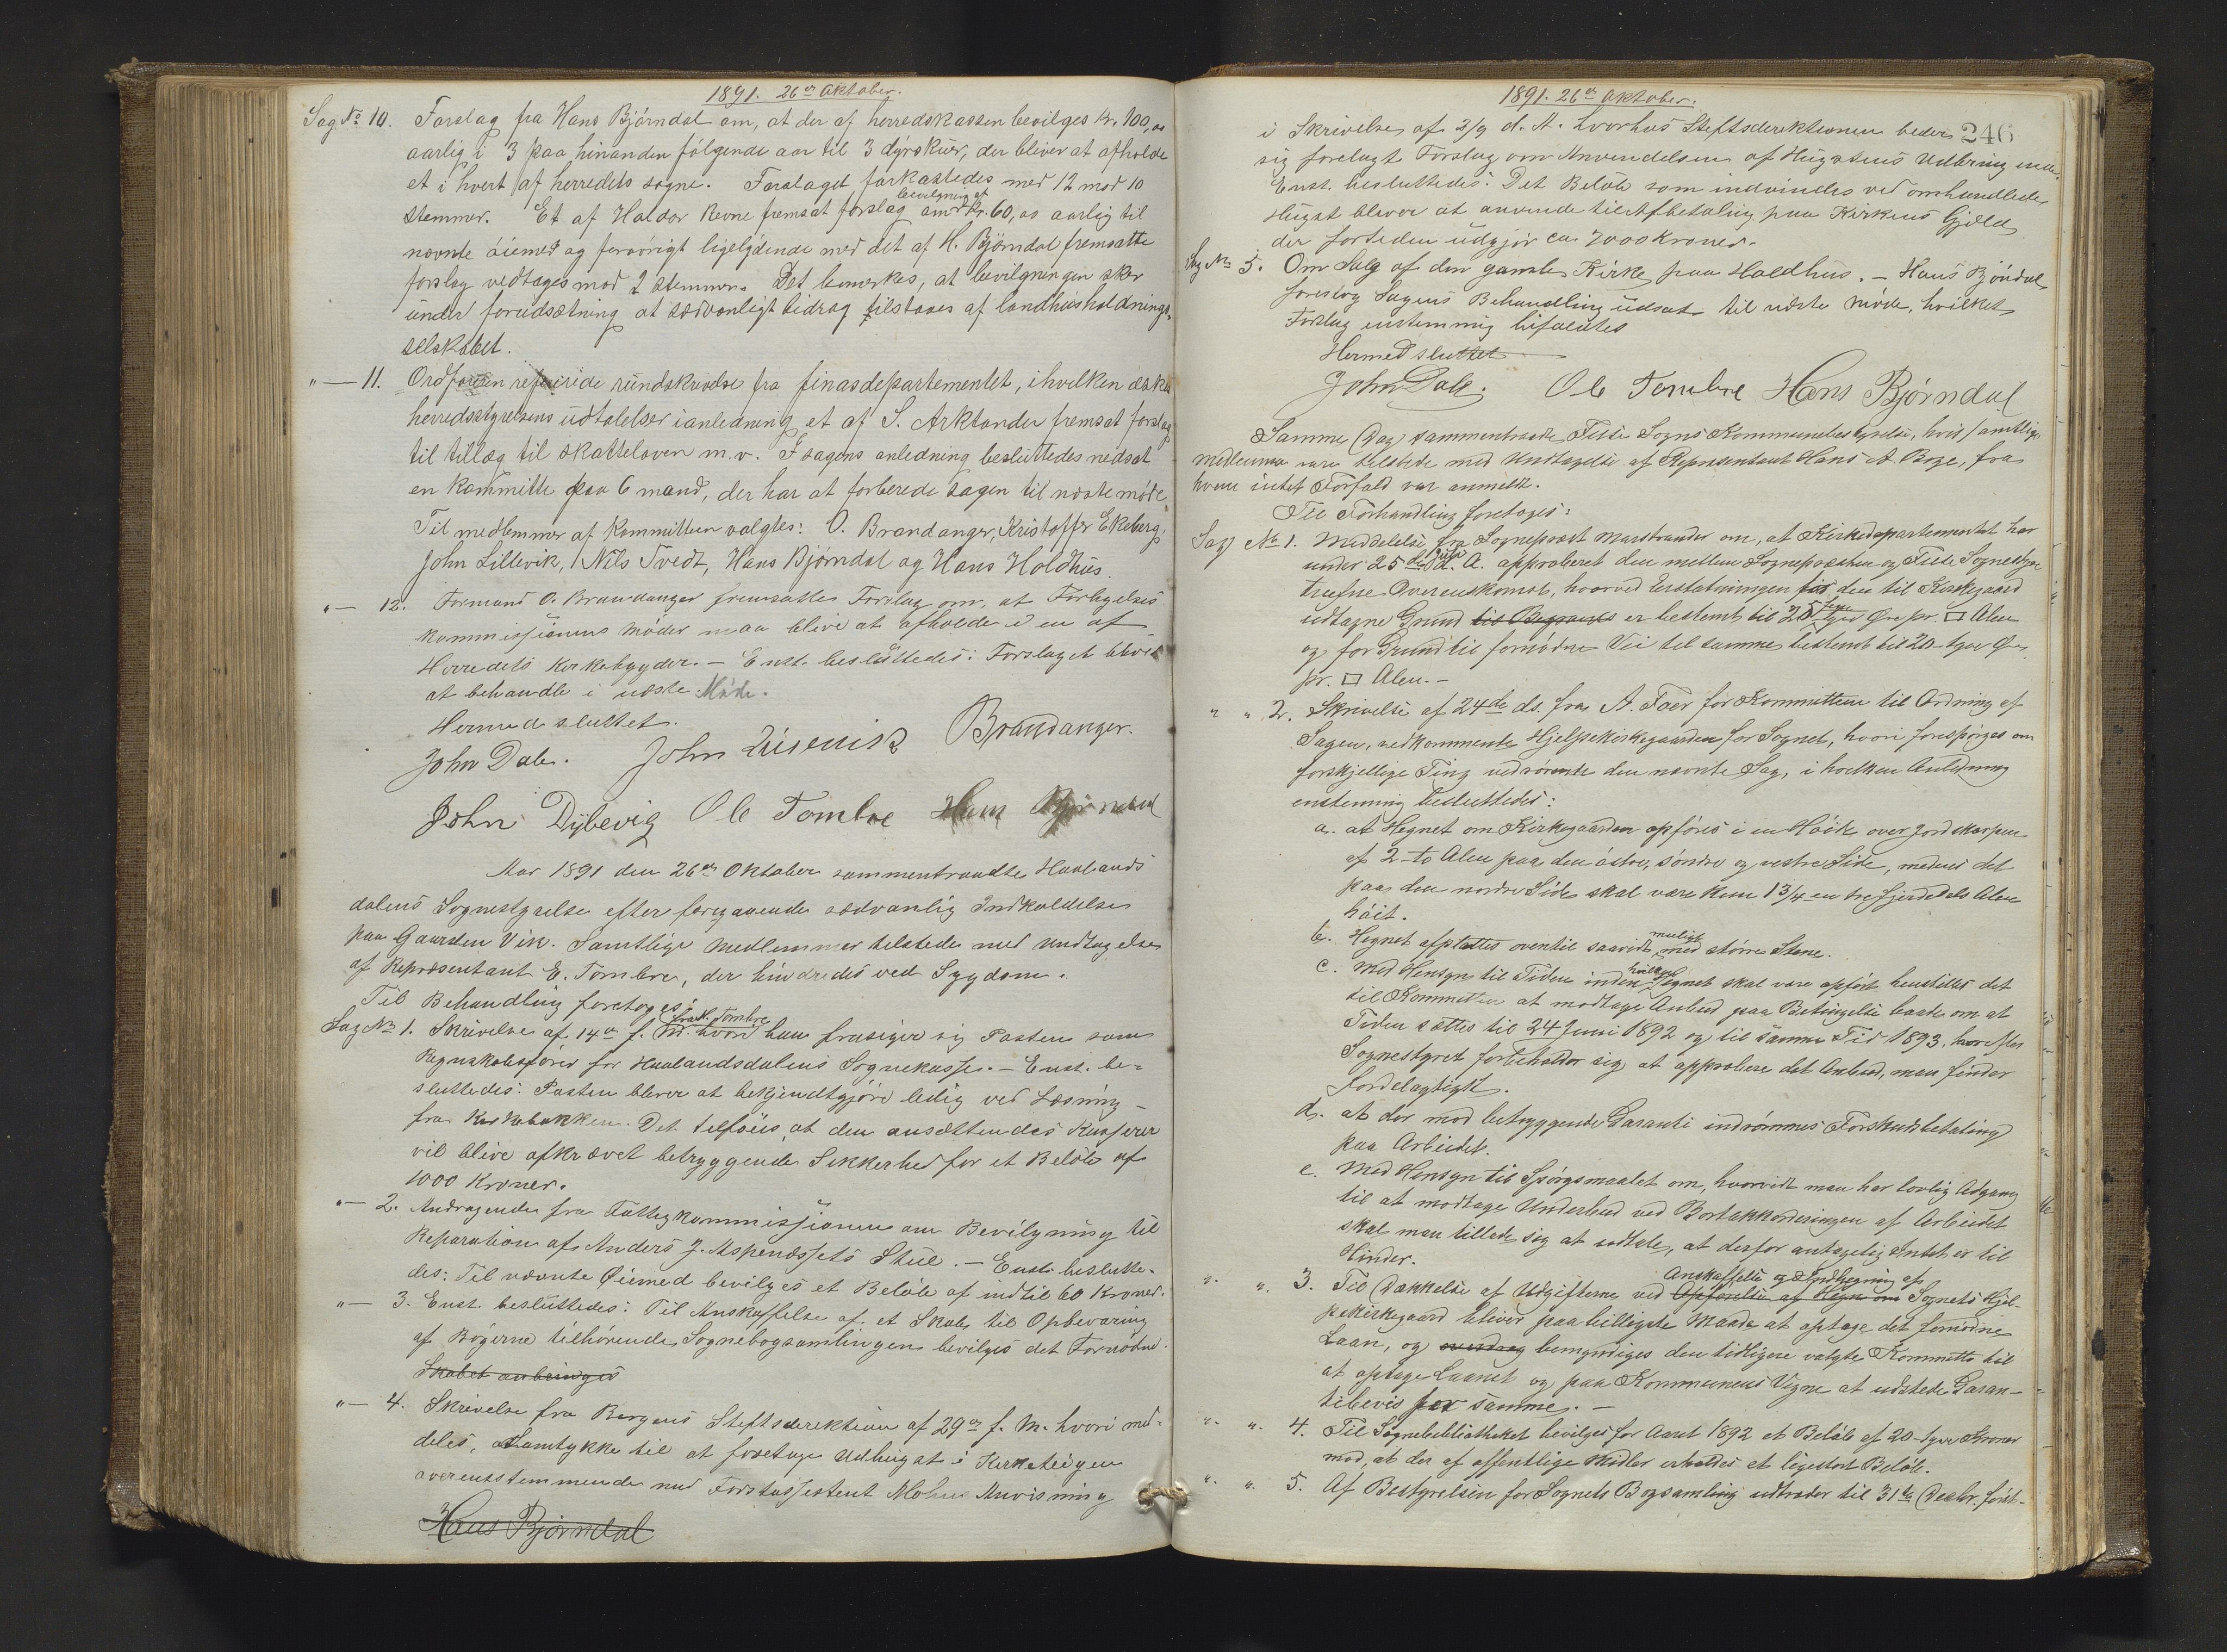 1891. 26de Oktober.
Sag No 10. Forslag fra Hans Björndal om, at der af herredskassen bevilges kr. 100,00
aarlig i 3 paa hinanden fölgende aar til 3 dyrskuer, der bliver at afholde
et i hvert af herredets sogne. Forslaget forkastedes med 12 mod 10
stemmer. Et af Haldor Revne fremsat forslag om bevilgning af kr. 60,00 aarlig til
nævnte öiemed og forövrigt ligelydende med det af H. Björndal fremsatte
forslag vedtages mod 2 stemmer. Det bemerkes, at bevilgningen sker
under forudsætning at sædvanligt bidrag tilstaaes af landhusholdnings-
selskabet.
" — 11. Ordföreren refererede rundskrivelse fra finasdepartementet, i hvilken æskes
herredsstyrelsens udtalelser i anledning et af S. Arktander fremsat forslag
til tillæg til skatteloven m.v. I sagens anledning besluttedes nedsat
en kommitte paa 6 mand, der har at forberede sagen til næste möde
Til medlemmer af kommitteen valgtes: O. Brandanger, Kristoffer Ekeberg,
John Lillevik, Nils Tvedt, Hans Björndal og Hans Holdhus.
" — 12. Formand O. Brandanger fremsatte Forslag om, at Forligelses
kommissionens Möder maa blive at afholde i en af
Herredets Kirkebygder. — Enst. besluttedes: Forslaget blive
at behandle i næste Möde.
Hermed sluttet.
John Dale. John Lillevik Brandanger.
John Dybevig Ole Tombre Hans Björndal
Aar 1891 den 26de Oktober sammentraadte Haalands
dalens Sognestyrelse efter foregaaende sædvanlig Indkaldelse
paa Gaarden Vik. Samtlige Medlemmer tilstede med undtagelse
af Repræsentant E. Tombre, der hindredes ved Sygdom.
Til Behandling foretoges:
Sag No 1. Skrivelse af 14de f. M. fra H. Tombre hvori han frasiger sig Posten som
Regnskabsförer for Haalandsdalens Sognekasse. — Enst. be-
sluttedes: Posten bliver at bekjendtgjöre ledig ved Læsning
fra Kirkebakken. Det tilföies, at den ansættendes Kasserer
vil blive afkrævet betryggende Sikkerhed for et Belöb af
1000 Kroner.
" — 2. Andragende fra Fattigkommissionen om Bevilgning til
Reparation af Anders J. Aspenæssets Stue. — Enst. beslutte-
des: Til nævnte Öiemed bevilges et Belöb af indtil 60 Kroner.
" — 3. Enst. besluttedes: Til Anskaffelse af et Skab til Opbevaring
af Bögerne tilhörende Sognebogsamlingen bevilges det Fornödne.
Skabet anbringes
" — 4. Skrivelse fra Bergens Stiftsdirektion af 29de f. M. hvori med-
deles, Samtykke til at foretage Udhugst i Kirketeigen
overensstemmende med Forstassistent Mohns Anvisning
Hans Björndal
1891. 26de Oktober.
246
i Skrivelse af 3/9 d. A. hvorhos Stiftsdirektionen beder
sig forelagt Forslag om Anvendelsen af Hugstens Udbring ende.
Enst. besluttedes: Det Belöb som indvindes ved omhandlede
Hugst bliver at anvende til Afbetaling paa Kirkens Gjæld,
der fortiden udgjör ca. 7000 Kroner.
Sag No 5. Om Salg af den gamle Kirke paa Holdhus. — Hans Björndal
foreslog Sagens Behandling udsat til næste Möde, hvilket
Forslag enstemmig bifaldtes
Hermed sluttet
John Dale. Ole Tombre Hans Bjørndal
Samme Dag sammentraadte Fuse Sogns Kommunebestyrelse, hvis samtlige
medlemmer vare tilstede med Undtagelse af Repræsentant Hans A. Berge, fra
hvem intet Forfald var anmeldt.
Til Forhandling foretoges:
Sag No 1. Meddelelse fra Sogneprest Marstrander om, at Kirkedepartementet har
under 25de Juli d. A. approberet den mellem Sognepresten og Fuse Sognestyre
trufne Overenskomst, hvorved Erstatningen for den til Kirkegaard
udtagne Grund er bestemt til 25 fem tyve Öre pr. □ Alen
og for Grund til fornödne Vei til samme bestemt til 20 - tyve Öre
pr. □ Alen. —
" " 2. Skrivelse af 24de ds. fra A. Töer for Kommitteen til Ordning af
Sagen, vedkommende Hjelpekirkegaarden for Sognet, hvori forespörges om
forskjellige Ting vedrörende den nævnte Sag, i hvilken Anledning
enstemmig besluttedes:
a. at Hegnet om Kirkegaarden opföres i en Höide over Jordskorpen
af 2 - to Alen paa den östre, söndre og vestre Side, medens det
paa den nordre Side skal være kun 1 3/4 en tre fjerdedels Alen
höit.
b. Hegnet afplattes oventil saavidt muligt med större Stene.
c. Med Hensyn til Tiden inden hvilken Hegnet skal være opfört henstilles det
til Kommitteen at modtage Anbud paa Betingelse baade om at
Tiden sættes til 24 Juni 1892 og til samme Tid 1893, hvorefter
Sognestyret forbeholder sig at approbere det Anbud, man finder
fordelagtigst.
d. at der mod betryggende Garanti indrömmes Forskudsbetaling
paa Arbeidet.
e. Med Hensyn til Spörgsmaalet om, hvorvidt man har lovlig Adgang
til at modtage Underbud ved Bortakkorderingen af Arbeidet
skal man tillade sig at udtale, at derfor antagelig Intet er til
Hinder.
" " 3. Til Dækkelse af Udgifterne ved Opförelse af Hegn om Anskaffelse og Indhegning af Sognets Hjel-
pekirkegaard bliver paa billigste Maade at optage det fornödne
Laan, og overdrag bemyndiges den tidligere valgte Kommitte til
at optage Laanet og paa Kommunens Vegne at udstede Garan-
tibevis for samme. —
" " 4. Til Sognebibliotheket bevilges for Aaret 1892 et Belöb af 20 - tyve Kroner
mod, at der af offentlige Midler erholdes et ligestort Belöb.
" " 5. Af Bestyrelsen for Sognets Bogsamling udtræder til 31te Decbr. först-